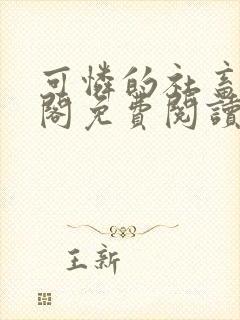 可憐的社畜
閣免費閱讀
王新